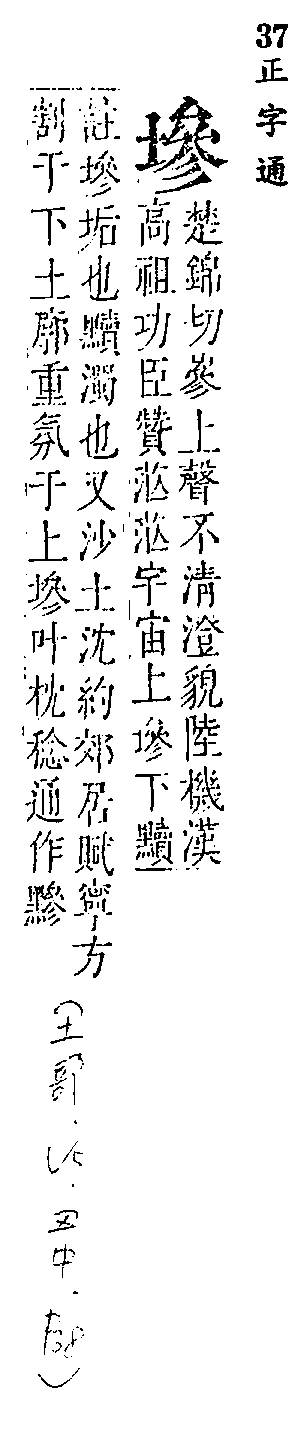 37正字通
墋
楚錦切參上聲不清澄貌陸機漢
高祖功臣贊茫茫宇宙上墋下黷
註墋垢也黷濁也又沙土沈約郊居賦寧方
割于下土廓重氛于上墋叶枕稔通作黲
(土部．丑中．)